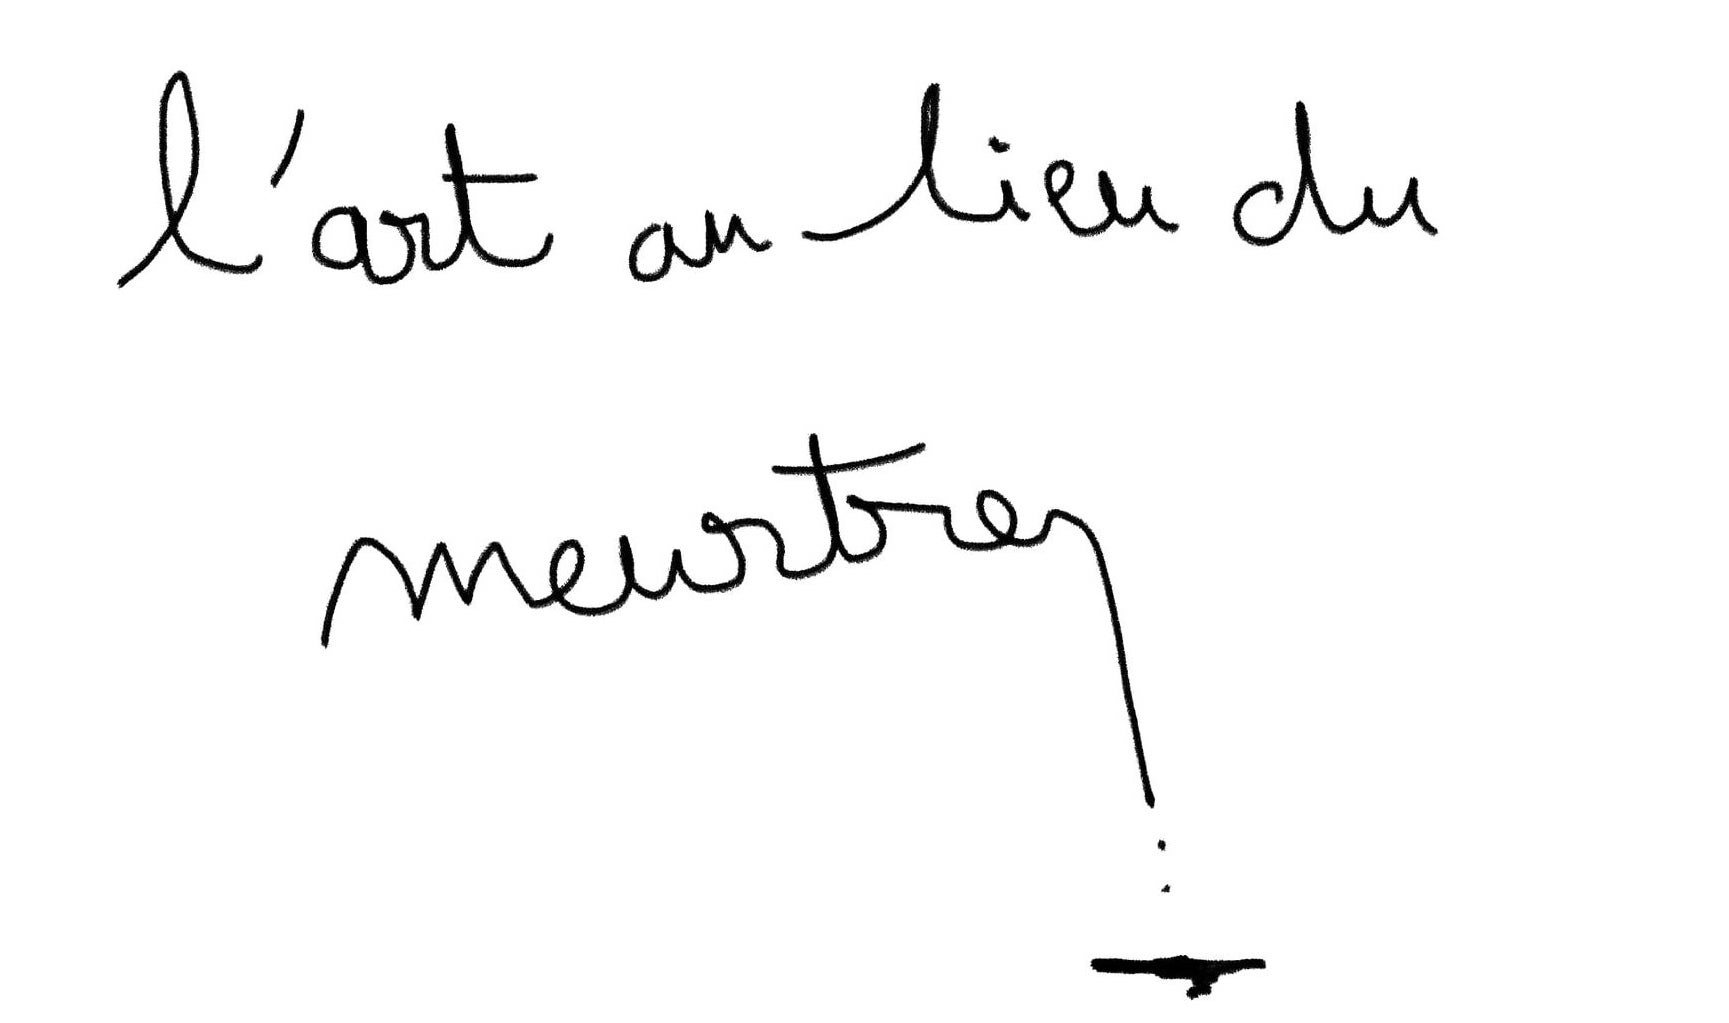 l'art au lieu du
meurtre